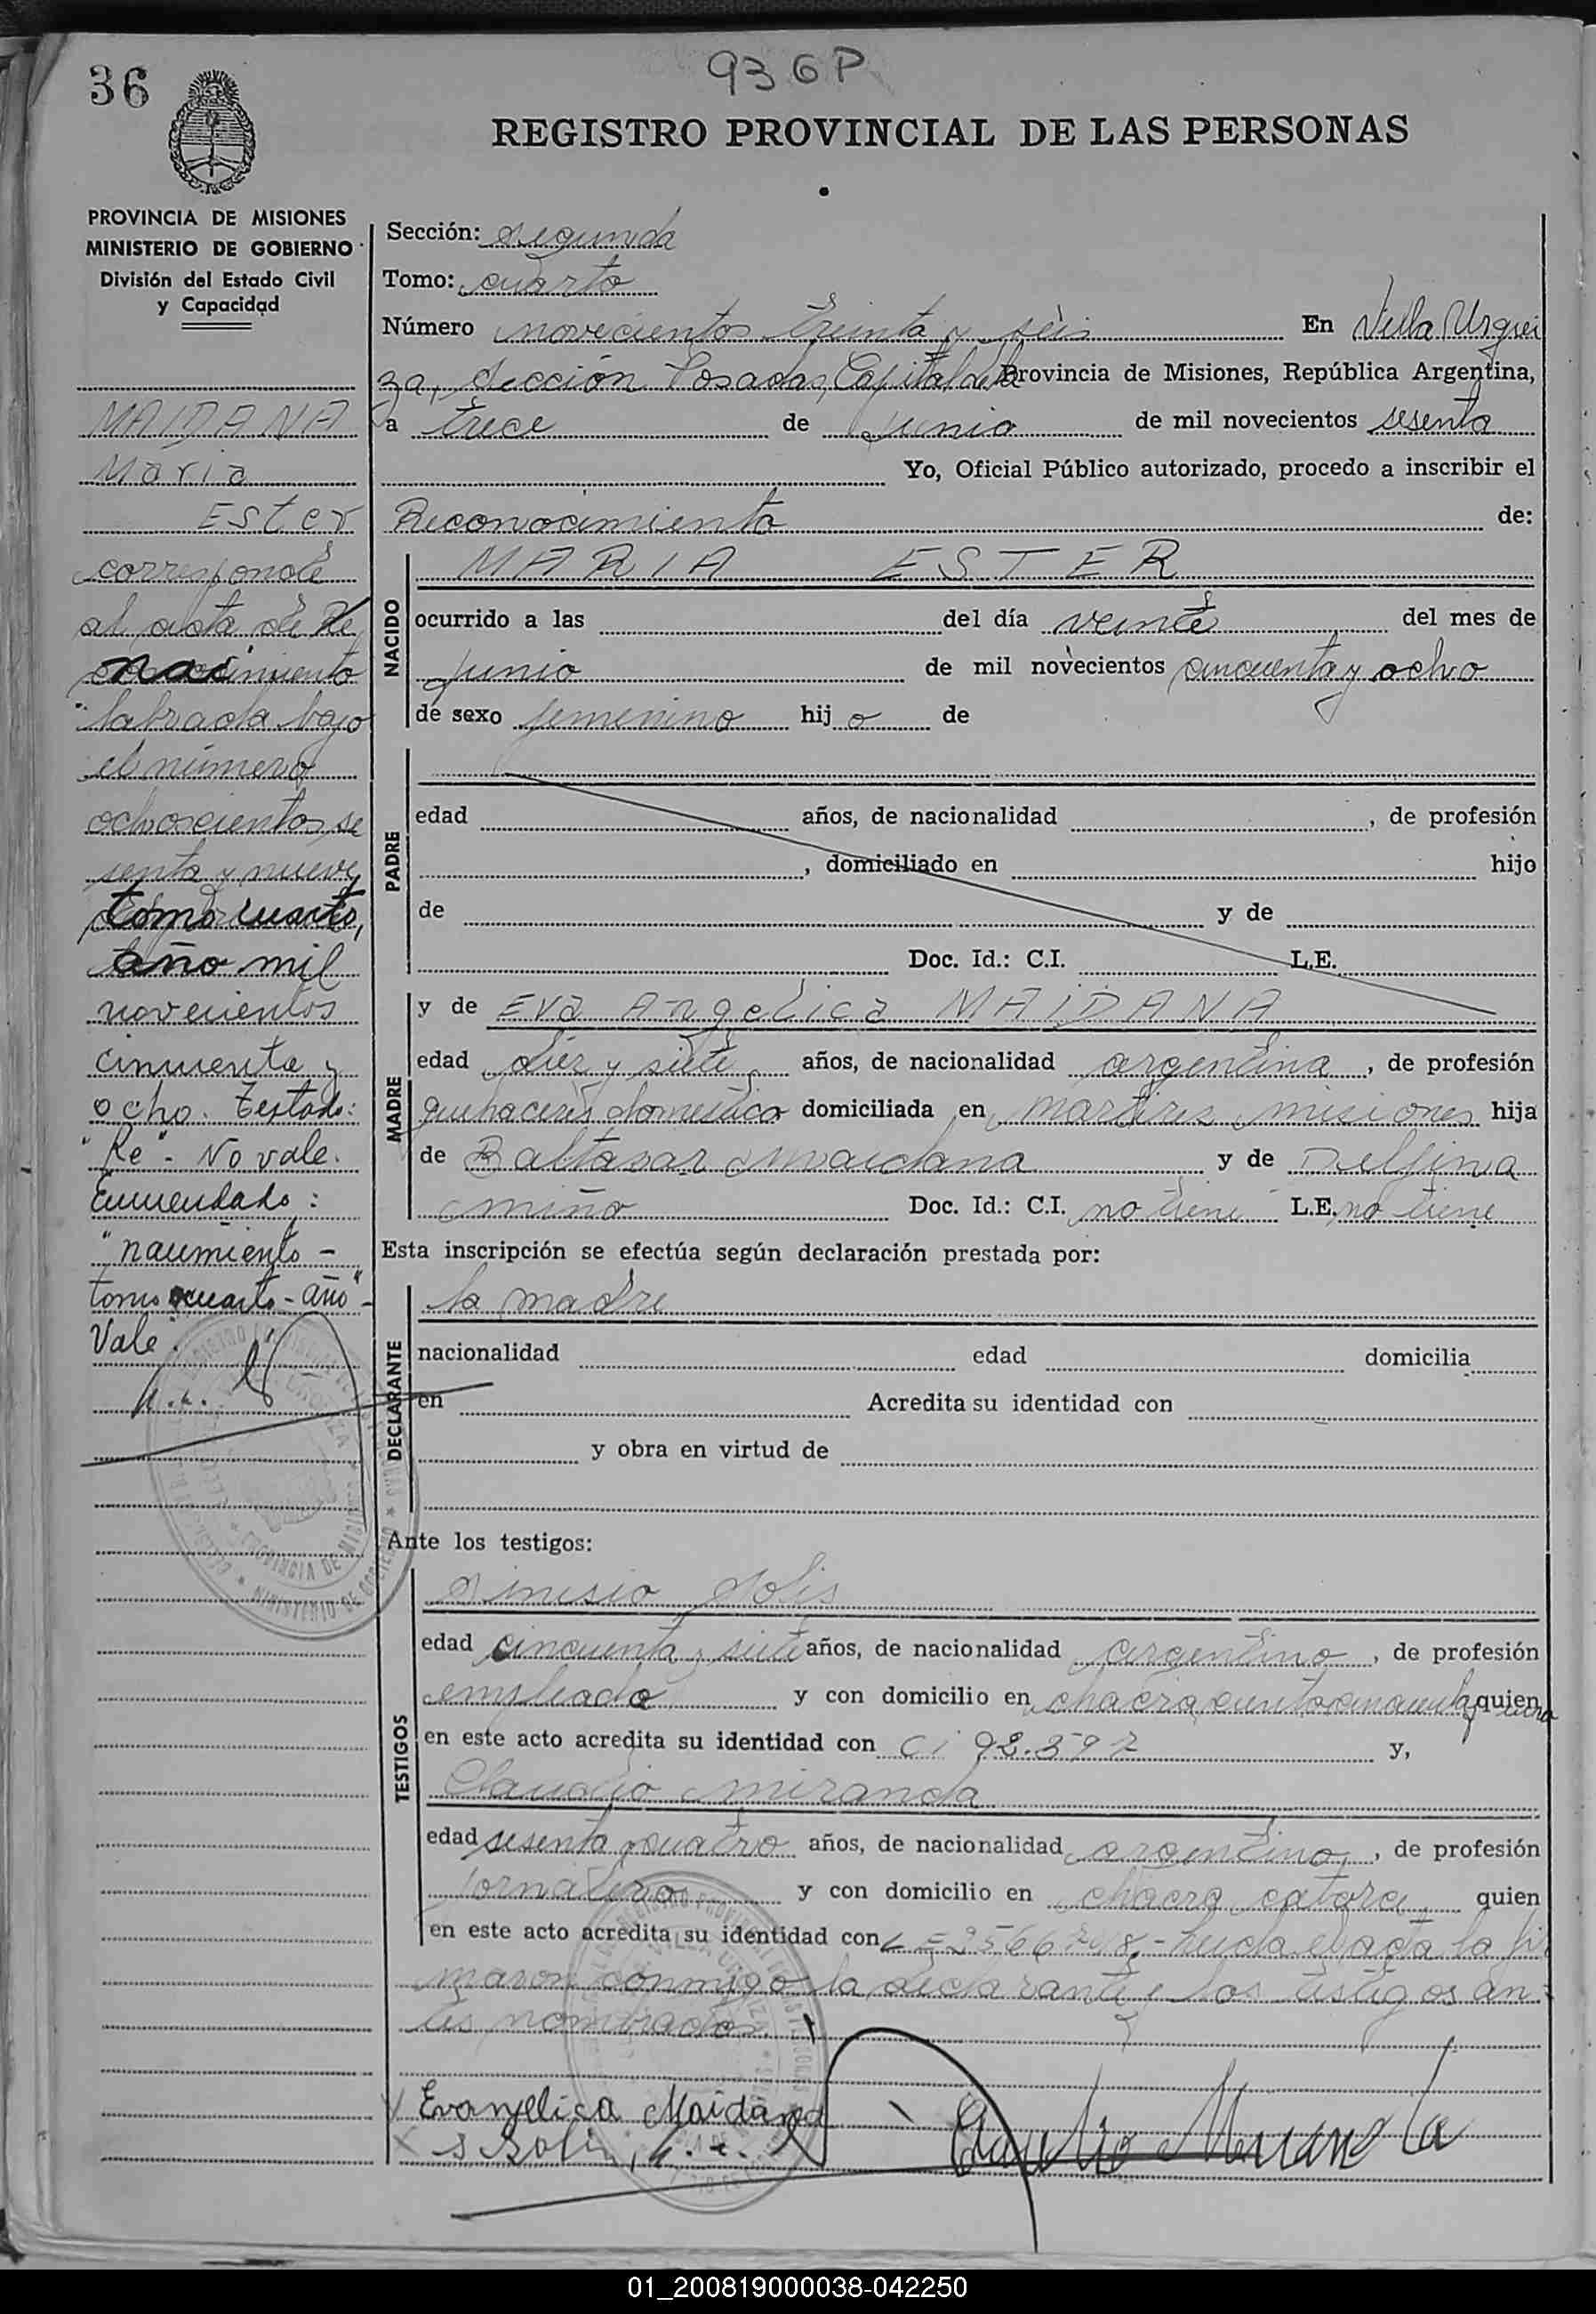 36
936P
REGISTRO PROVINCIAL DE LAS PERSONAS
PROVINCIA DE MISIONES
MINISTERIO DE GOBIERNO
División del Estado Civil
y Capacidad
MAIDANA
Maria
Ester
corresponde
al acta de Re
nacimiento
labrada bajo
el número
ochocientos se
senta y nueve
tomo cuarto,
año mil
novecientos
cincuenta y
ocho. Testado:
"Re" - No vale.
Enmendado:
"nacimiento -
tomo cuarto - año" -
Vale.
Sección: segunda
Tomo: cuarto
Número novecientos treinta y seis En Villa Urquí
za, sección Posadas, Capital de la Provincia de Misiones, República Argentina,
a trece de junio de mil novecientos sesenta
Yo, Oficial Público autorizado, procedo a inscribir el
Reconocimiento de:
NACIDO
MARIA ESTER
ocurrido a las del día veinte del mes de
junio de mil novecientos cincuenta y ocho
de sexo femenino hij o de
PADRE
edad años, de nacionalidad , de profesión
, domiciliado en hijo
de y de
Doc. Id.: C.I. L.E.
MADRE
y de Eva Angelica MAIDANA
edad diez y siete años, de nacionalidad argentina, de profesión
quehaceres domestico domiciliada en martires misiones hija
de Baltasar maidana y de Delfina
miño Doc. Id.: C.I. no tiene L.E. no tiene
Esta inscripción se efectúa según declaración prestada por:
DECLARANTE
la madre
nacionalidad edad domicilia
en Acredita su identidad con
y obra en virtud de
Ante los testigos:
TESTIGOS
sinisio solis
edad cincuenta y siete años, de nacionalidad argentino, de profesión
empleado y con domicilio en chacra ciento cincuenta quien
en este acto acredita su identidad con Ci y,
Claudio miranda
edad sesenta y cuatro años, de nacionalidad argentino, de profesión
jornalero y con domicilio en chacra catorce quien
en este acto acredita su identidad con LE Leida el acta la fir
maron conmigo la declarante y los testigos an
tes nombrados.
Evangelica Maidana
Claudio Miranda
01_200819000038-042250